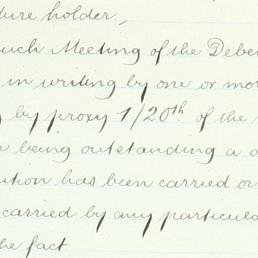 ture holder,
such Meeting of the Deben
in writing by one or mor
by proxy 1/20th. of the
being outstanding a d
ution has been carried or
carried by any particula
he fact